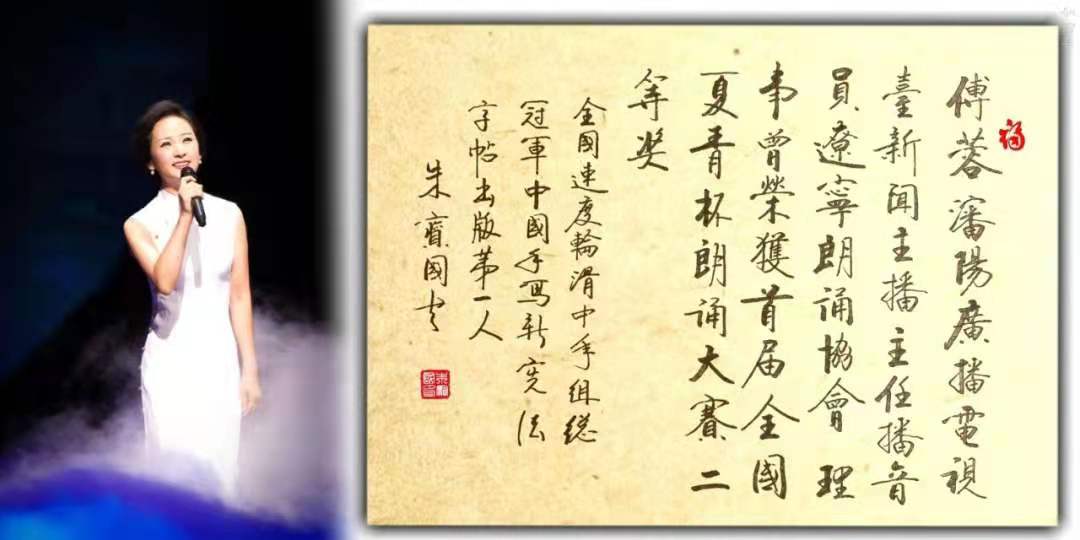 傅蓉瀋陽廣播電視
臺新聞主播主任播音
員遼寧朗誦協會理
事曾榮獲首届全國
夏青杯朗誦大賽二
等奖
全國速度輪滑中年组總
冠軍中國手写新宽法
字帖出版第一人
朱寶國书
福